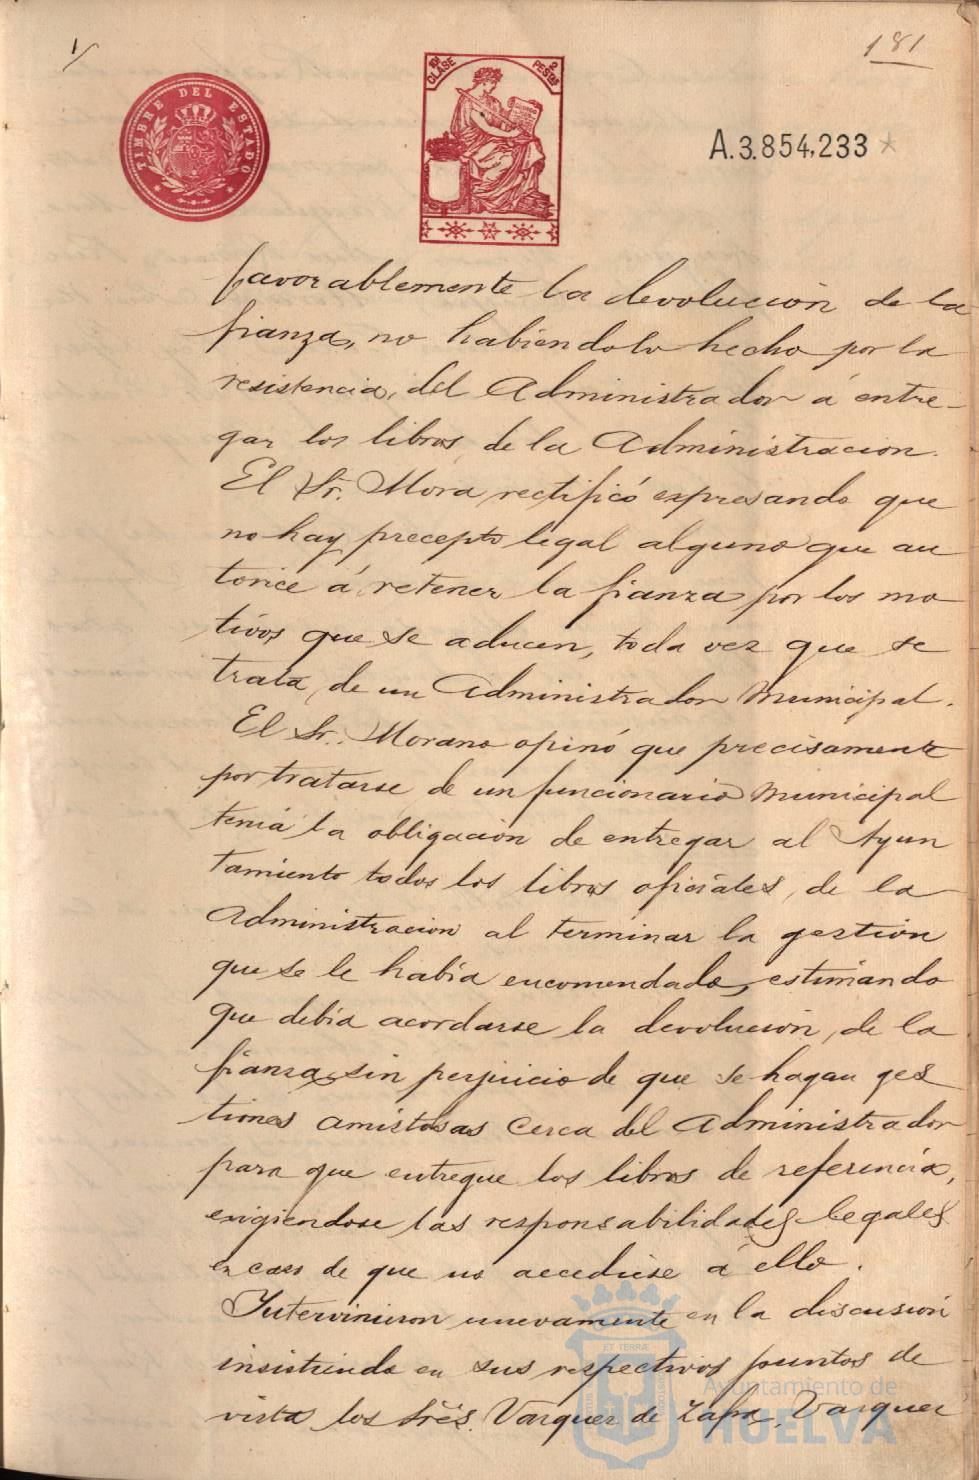 1/
181
TIMBRE DEL ESTADO
10ª CLASE
2 PESTAS
A.3.854,233
favorablemente la devolución de la
fianza, no habiendolo hecho por la
resistencia, del Administrador á entre-
gar los libros, de la Administracion.
El Sr. Mora rectificó expresando que
no hay precepto legal alguno que au
torice á retener la fianza por los mo
tivos que se aducen, toda vez que se
trata, de un Administrador Municipal.
El Sr. Morano opinó que precisamente
por tratarse de un funcionario Municipal
tenia la obligación de entregar al Ayun
tamiento todos los libros oficiales, de la
Administracion al terminar la gestión
que se le habia encomendado, estimando
que debia acordarse la devolución, de la
fianza, sin perjuicio de que se hagan ges
tiones amistosas cerca del Administrador
para que entregue los libros de referencia,
exigiendose las responsabilidades legales
en caso de que no accediese á ello.
Intervinieron nuevamente en la discusión
insistiendo en sus respectivos puntos de
vista los Srés. Vazquez de Zafra, Vazquez
ET TERRÆ
Ayuntamiento de
HUELVA